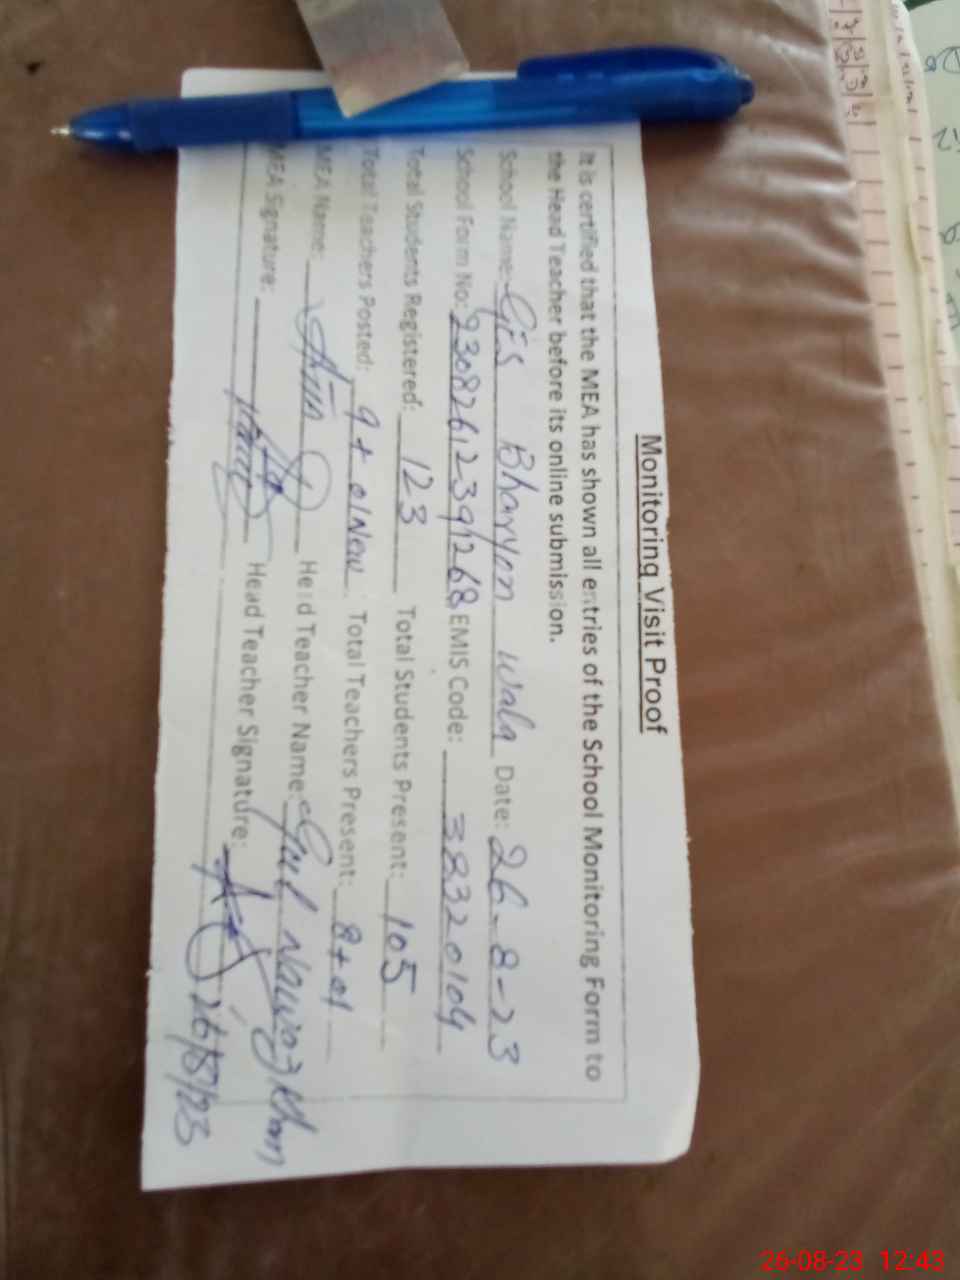 Monitoring Visit Proof
It is certified that the MEA has shown all entries of the School Monitoring Form to
the Head Teacher before its online submission.
School Name: GES Bharyon wala Date: 26-8-23
School Form No: EMIS Code: 38320104
Total Students Registered: 123 Total Students Present: 105
Total Teachers Posted: 9+01New Total Teachers Present: 8+01
MEA Name: Head Teacher Name: Gul Nawaz Khan
MEA Signature: Head Teacher Signature:
26/8/23
26-08-23 12:43